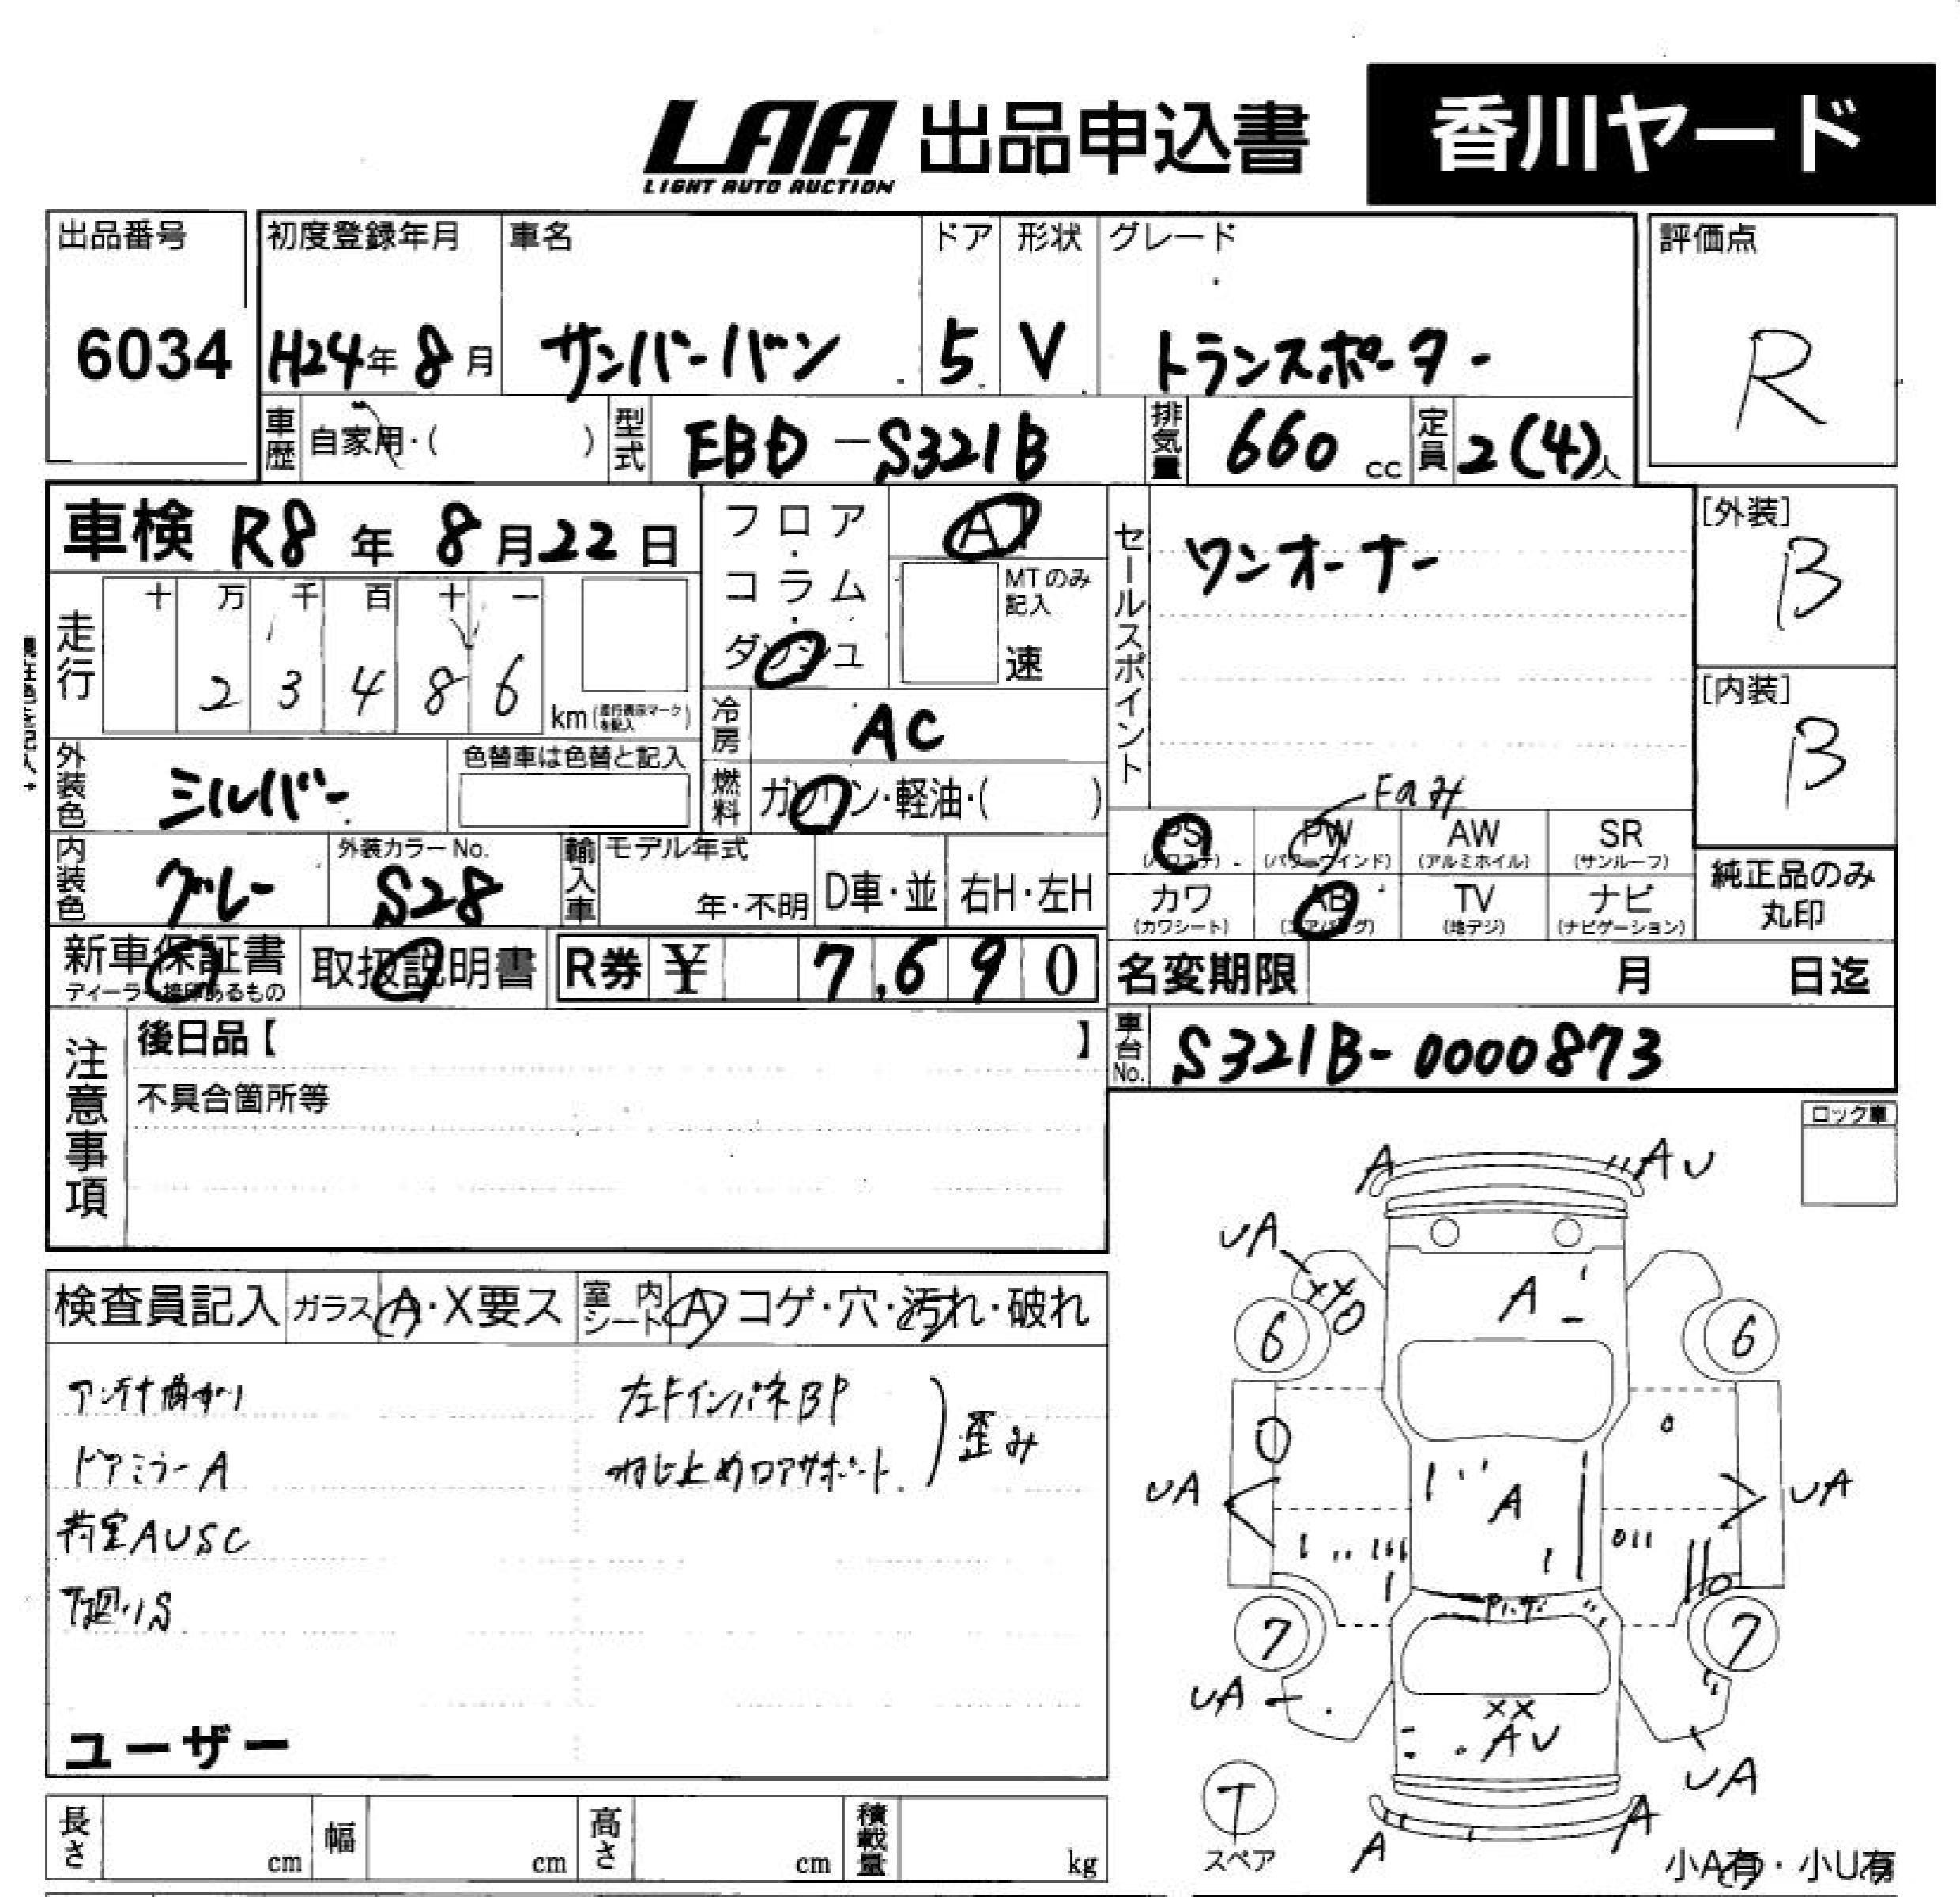 LAA 出品申込書 香川ヤード
LIGHT AUTO AUCTION
出品番号 初度登録年月 車名 ドア 形状 グレード 評価点
6034 H24年8月 サンバーバン 5 V トランスポーター R
車歴 自家用・( ) 型式 EBD-S321B 排気量 660 cc 定員 2(4)人
車検 R8年8月22日 フロア・コラム・ダッシュ AT
MTのみ記入 速
セールスポイント ワンオーナー
[外装] B
走行 十 万 千 百 十 一
2 3 4 8 6 km(走行表示マークを記入)
[内装] B
冷房 AC
外装色 シルバー 色替車は色替と記入
燃料 ガソリン・軽油・( )
内装色 グレー 外装カラーNo. S28
輸入車 モデル年式 年・不明 D車・並 右H・左H
Fのみ
PS (パワステ) PW (パワーウインド) AW (アルミホイル) SR (サンルーフ)
カワ (カワシート) AB (エアバッグ) TV (地デジ) ナビ (ナビゲーション)
純正品のみ
丸印
新車保証書 取扱説明書 R券 ¥ 7,690
ディーラー捺印あるもの
名変期限 月 日迄
車台No. S321B-0000873
注意事項
後日品【 】
不具合箇所等
ロック車
検査員記入 ガラス A・X要ス 室内シート A コゲ・穴・汚れ・破れ
アンテナ曲がり 左FインパネBP
ドアミラーA ねじ止めロアサポート 歪み
荷室AUSC
下廻りS
ユーザー
A AU
UA XX
6 A 6
UA A UA
7 7
UA XX
AU UA
T
スペア A A
小A有・小U有
長さ cm 幅 cm 高さ cm 積載量 kg